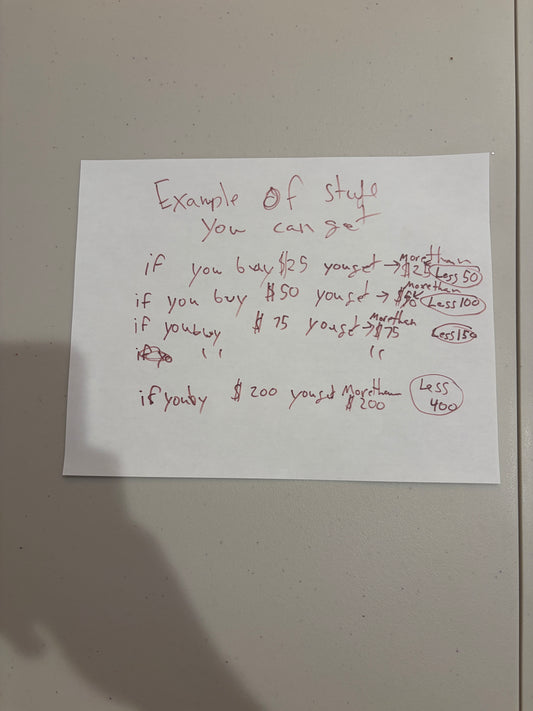 Example Of stuff
You can get
if you buy $25 you get → More than $25 Less 50
if you buy $50 you get → More than $50 Less 100
if you buy $75 you get → More than $75 Less 150
if " "
if you by $200 you get More than $200 Less 400